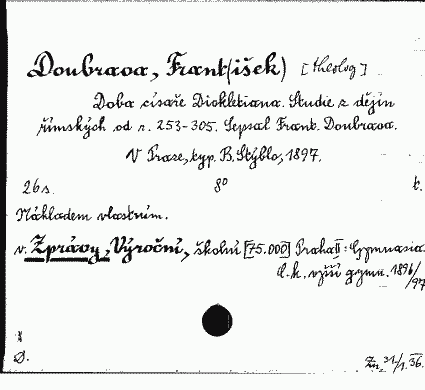 Doubrava, Frant(išek) [theolog]
Doba císaře Diokletiana. Studie z dějin
římských od r. 253-305. Sepsal Frant. Doubrava.
V Praze, typ. B. Stýblo, 1897.
26 s. 8° t.
Nákladem vlastním.
v. Zprávy, Výroční, školní [75.000] Praha II: Gymnasia.
C. k. vyšší gymn. 1896/97
D. 31/1. 36.